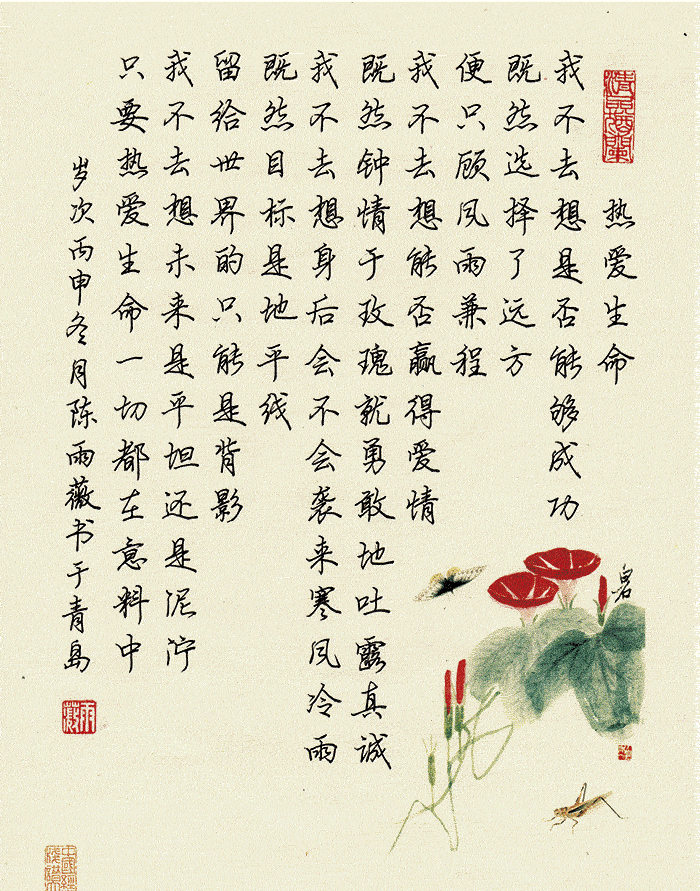 热爱生命
我不去想是否能够成功
既然选择了远方
便只顾风雨兼程
我不去想能否赢得爱情
既然钟情于玫瑰就勇敢地吐露真诚
我不去想身后会不会袭来寒风冷雨
既然目标是地平线
留给世界的只能是背影
我不去想未来是平坦还是泥泞
只要热爱生命一切都在意料中
岁次丙申冬月陈雨薇书于青岛
雨薇